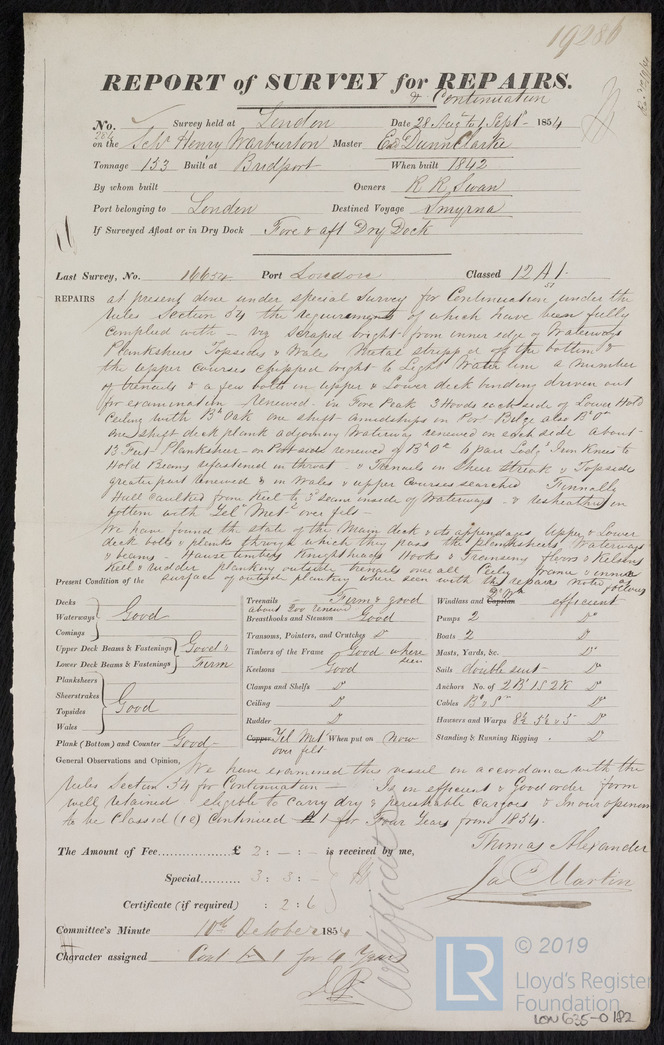 19286
REPORT of SURVEY for REPAIRS.
& Continuation
No. Survey held at London Date 28 Aug to 1 Sept 1854
on the Schr Henry Warburton Master Ed Dunn Clarke
Tonnage 133 Built at Bridport When built 1842
By whom built Owners R R Swan
Port belonging to London Destined Voyage Smyrna
If Surveyed Afloat or in Dry Dock Fore & aft Dry Dock
Last Survey, No. 16654 Port London Classed 12 A1.
REPAIRS at present done under special Survey for Continuation under the
rules Section 54 the requirements of which have been fully
complied with – viz scraped bright from inner edge of Waterways
Planksheers Topsides & Wales Metal stripped off the bottom &
the upper courses chipped bright to Light Water line a number
of trenails & a few bolts in upper & Lower deck binding driven out
for examination Renewed – in Fore Peak 3 Hoods each side of Lower Hold
Ceiling with Bh Oak one shift amidships in Port Bilge also Bh Ok
one shift deck plank adjoining Waterway renewed on each side about
13 Feet Planksheer – on Port side renewed of Bh Ok 6 pair Lodg Iron Knees to
Hold Beams refastened in throat – & Trenails in Sheer Streak & Topside
greater part renewed & in Wales & upper Courses searched Finally
Hull caulked from Keel to 3d seam inside of Waterways – & resheathed on
bottom with Yel Met over felt –
We have found the state of the Main deck & its appendages Upper & Lower
deck bolts & planks through which they pass the planksheers Waterways
& beams – Hawse timbers Knightheads Hooks & Transoms floors & Kelsons
Keel & rudder planking outside trenails over all Ceilg frame & inner
surface of outside planking where seen with the repairs noted as follows
Present Condition of the
Decks
Waterways Good
Comings
Upper Deck Beams & Fastenings Good &
Lower Deck Beams & Fastenings Firm
Planksheers
Sheerstrakes
Topsides Good
Wales
Plank (Bottom) and Counter Good
Treenails Firm & good
about 200 renewd
Breasthooks and Stemson Good
Transoms, Pointers, and Crutches Do
Timbers of the Frame Good where seen
Keelsons Good
Clamps and Shelfs Do
Ceiling Do
Rudder Do
Copper Yel Met over felt When put on Now
Windlass and Capstan efficient
Pumps 2 Do
Boats 2 Do
Masts, Yards, &c. Do
Sails double suit Do
Anchors No. of 2 B 1 S 2 K Do
Cables Do
Hawsers and Warps 8½ 5½ & 5 Do
Standing & Running Rigging Do
General Observations and Opinion, We have examined this vessel in accordance with the
rules Section 54 for Continuation – Is in efficient & Good order form
well retained eligible to carry dry & perishable cargoes & in our opinion
to be Classed (ie) Continued A1 for Four Years from 1854.
Thomas Alexander
Jas Martin
The Amount of Fee £ 2 : – : – is received by me,
Special 3 : 3 : –
Certificate (if required) : 2 : 6
Certificate
Committee's Minute 10th October 1854
Character assigned Cont A 1 for 4 Years
LR
© 2019
Lloyd's Register
Foundation
LON 635-0182